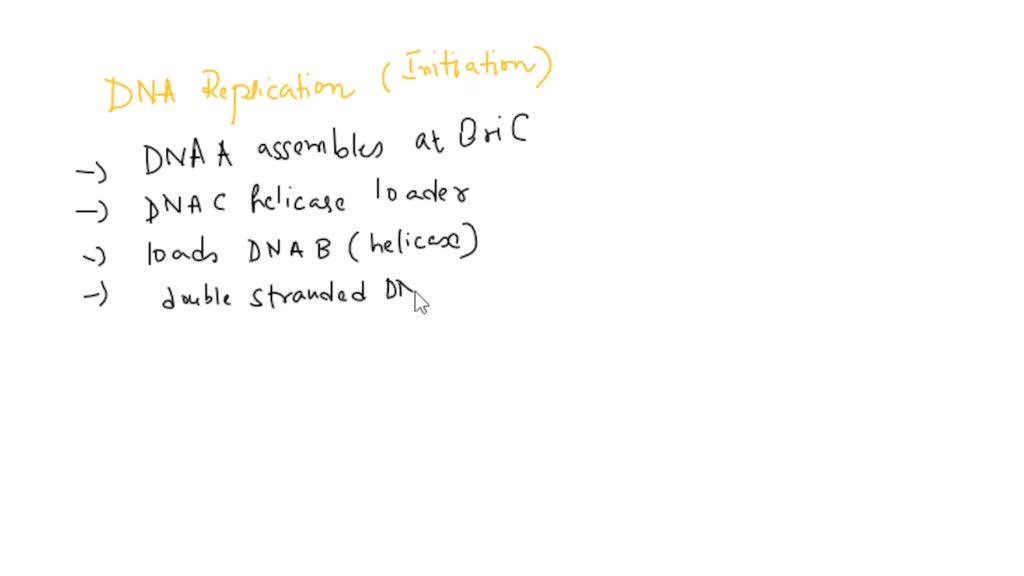 DNA Replication (Initiation)
→ DNA A assembles at OriC
→ DNA C helicase loader
→ loads DNA B (helicase)
→ double stranded DN